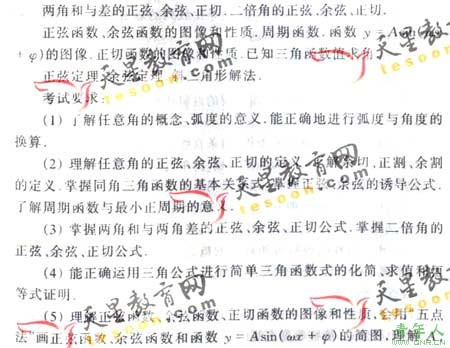 两角和与差的正弦、余弦、正切.二倍角的正弦、余弦、正切.
正弦函数、余弦函数的图像和性质.周期函数.函数 y=Asin(
+φ)的图像.正切函数的图像和性质.已知三角函数值求角.
正弦定理.余弦定理.斜三角形解法.
考试要求:
(1) 了解任意角的概念、弧度的意义.能正确地进行弧度与角度的
换算.
(2) 理解任意角的正弦、余弦、正切的定义.了解余切、正割、余割
的定义.掌握同角三角函数的基本关系式.掌握正弦、余弦的诱导公式.
了解周期函数与最小正周期的意义.
(3) 掌握两角和与两角差的正弦、余弦、正切公式.掌握二倍角的
正弦、余弦、正切公式.
(4) 能正确运用三角公式进行简单三角函数式的化简、求值和恒
等式证明.
(5) 理解正弦函数、余弦函数、正切函数的图像和性质.会用“五点
法”画正弦函数、余弦函数和函数 y=Asin(ωx+φ)的简图,理解
天星教育网
tesoon.com
青年人
www.QNR.CN